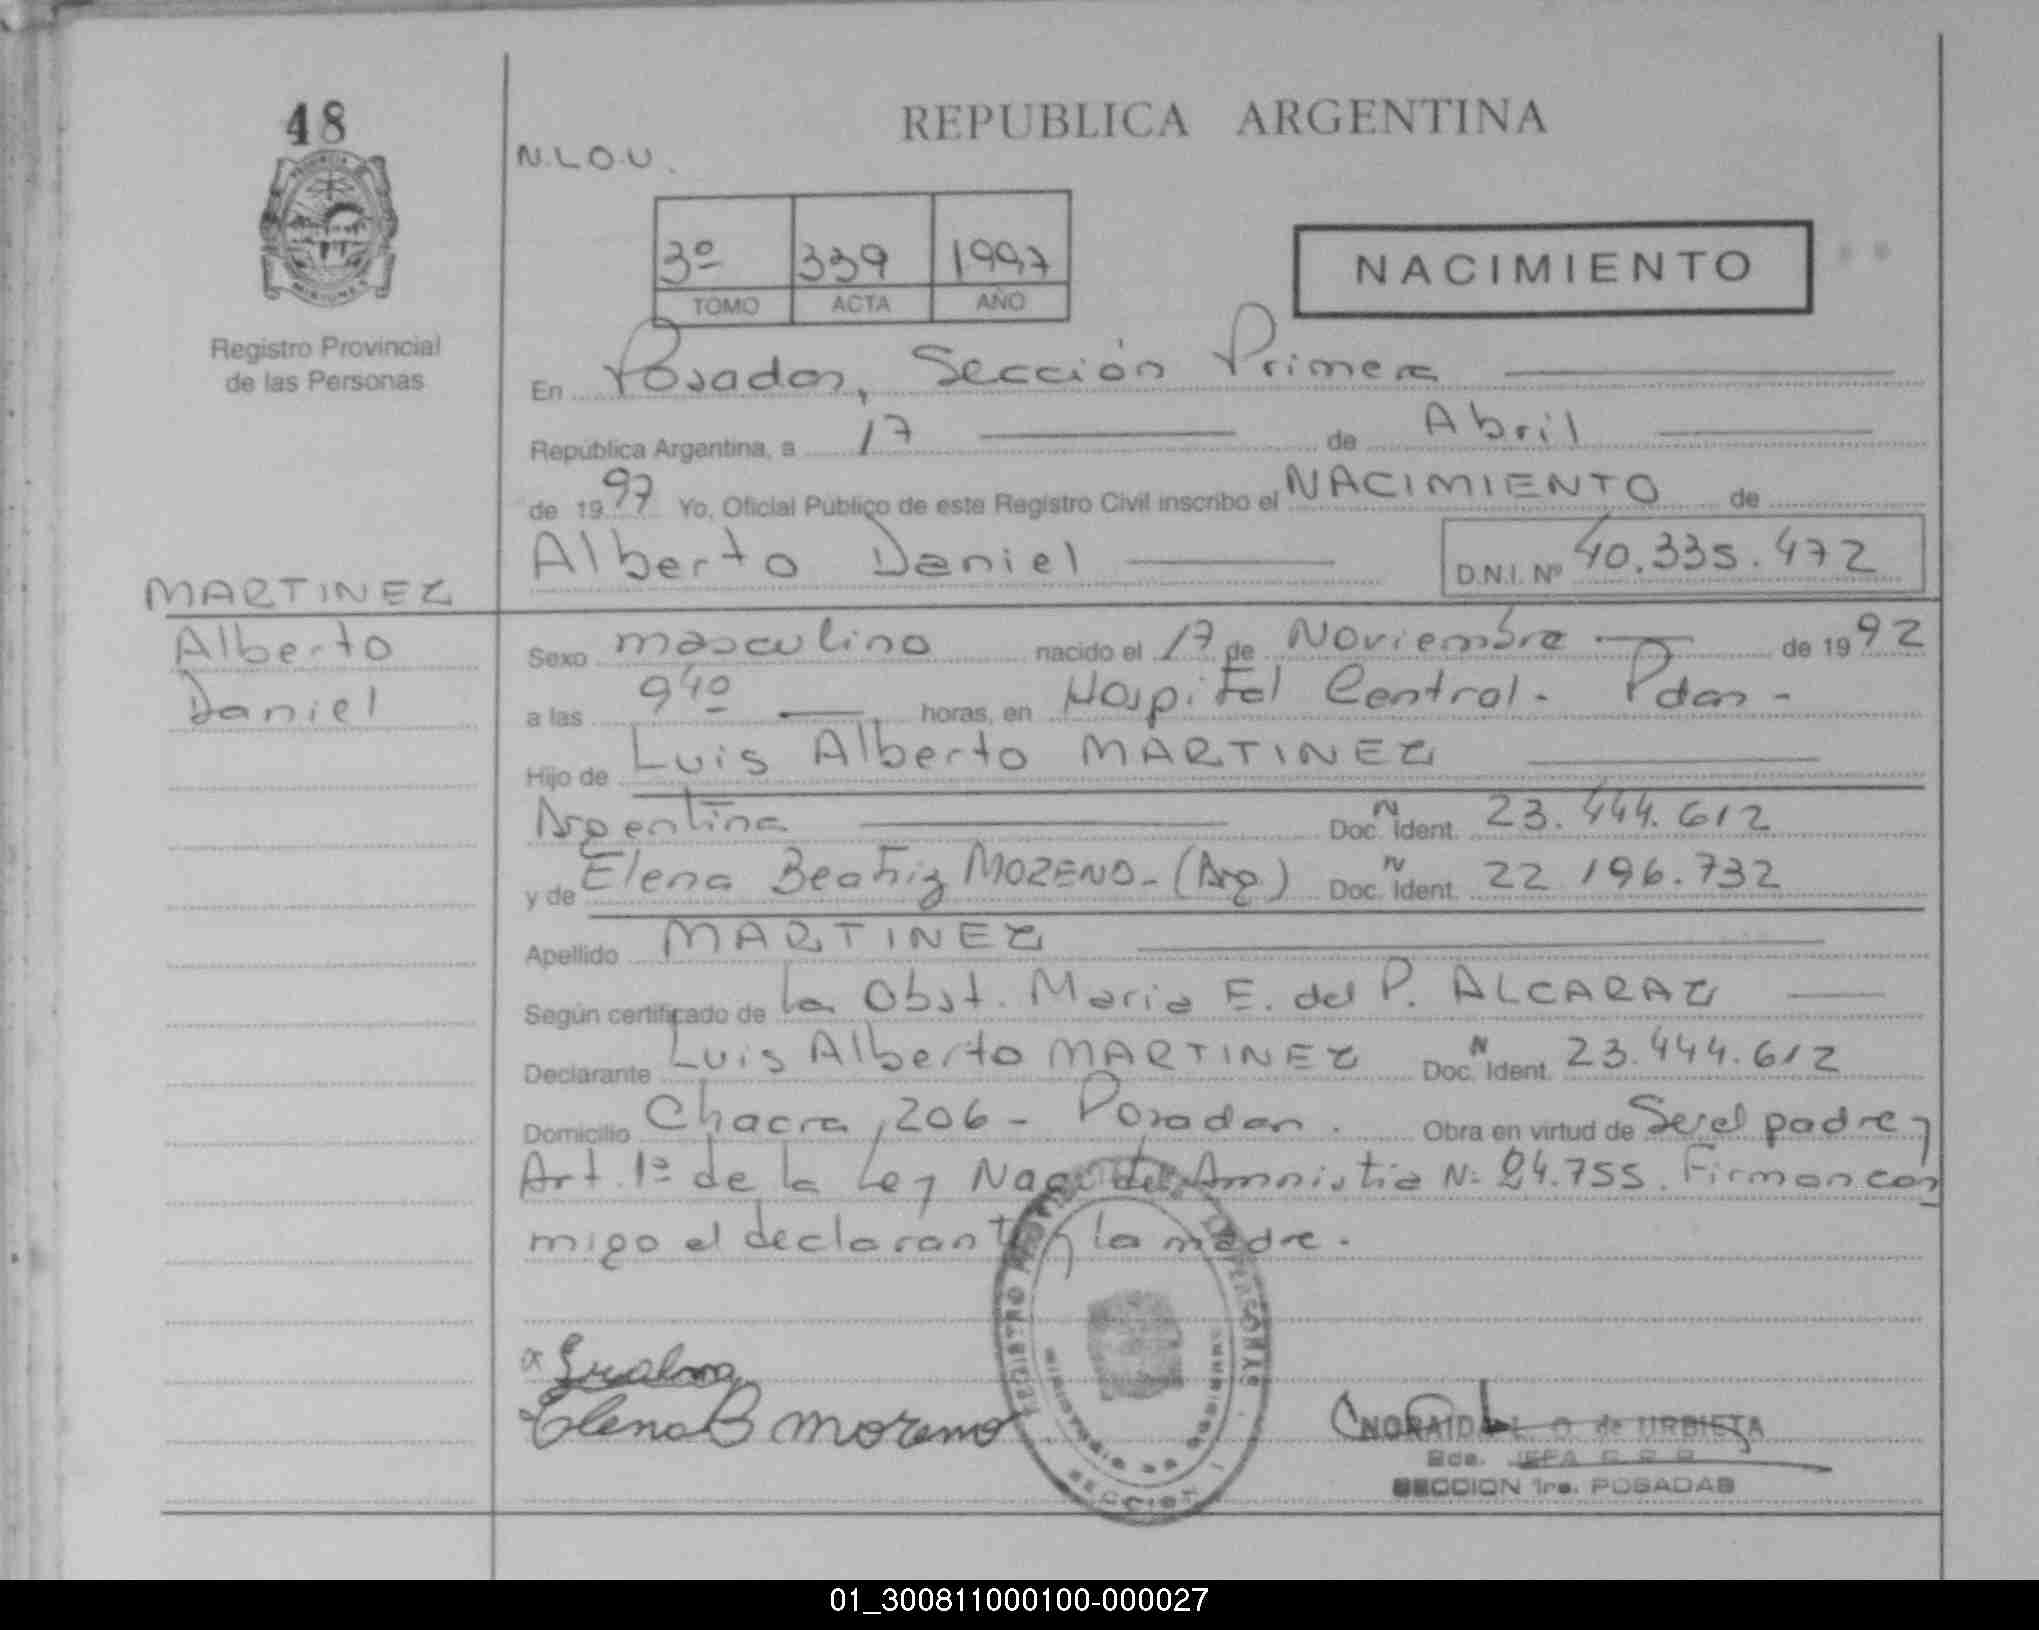 48
REPUBLICA ARGENTINA
N.L.O.U.
3º 339 1997
TOMO ACTA AÑO
NACIMIENTO
Registro Provincial
de las Personas
En Posadas, Sección Primera
República Argentina, a 17 de Abril
de 1997 Yo, Oficial Público de este Registro Civil inscribo el NACIMIENTO de
Alberto Daniel D.N.I. Nº 40.335.472
MARTINEZ
Alberto
Daniel
Sexo masculino nacido el 17 de Noviembre de 1992
a las 9 40 horas, en Hospital Central - Pdas -
Hijo de Luis Alberto MARTINEZ
Argentina Doc. N Ident. 23.444.612
y de Elena Beatriz MORENO - (Arg) Doc. N Ident. 22 196.732
Apellido MARTINEZ
Según certificado de la Obst. Maria E. del P. ALCARAZ
Declarante Luis Alberto MARTINEZ Doc. N Ident. 23.444.612
Domicilio Chacra 206 - Posadas. Obra en virtud de Ser el padre y
Art. 1º de la Ley Nac. de Amnistia Nº 24.755. Firman con
migo el declarante y la madre.
Elena B Moreno
NORAIDA L. O. de URBIETA
SECCION 1ra. POSADAS
REGISTRO PERSONAS
MINISTERIO DE GOBIERNO
SECCION 1
01_300811000100-000027